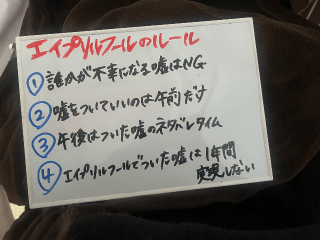 エイプリルフールのルール
① 誰かが不幸になる嘘はNG
② 嘘をついていいのは午前だけ
③ 午後はついた嘘のネタバレタイム
④ エイプリルフールでついた嘘は1年間
実現しない